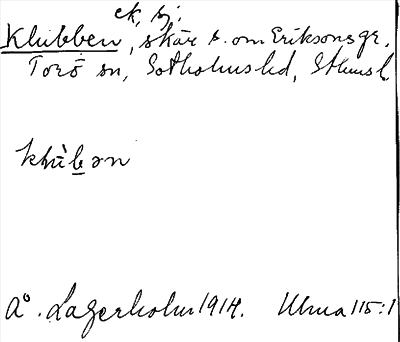 ek, bj:
Klubben, skär s. om Eriksonsgr.
Torö sn, Sotholms hd, Sthms l.
Å. Lagerholm 1914. Ulma 115:1